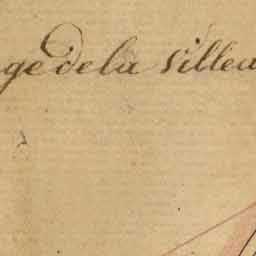 ge de la Villea